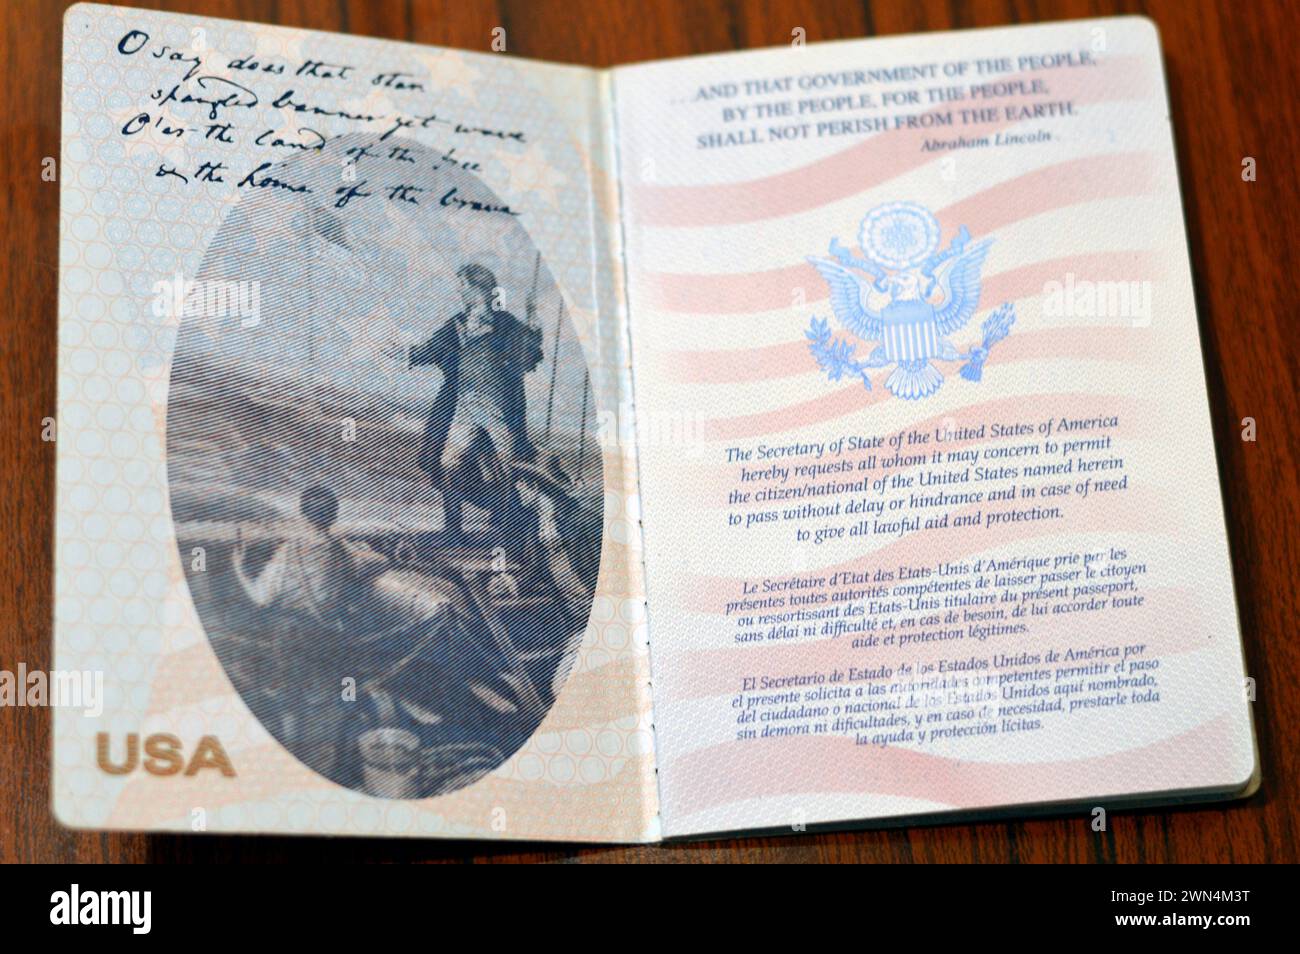 O say does that star
spangled banner yet wave
O'er the land of the free
& the home of the brave
USA
. . . AND THAT GOVERNMENT OF THE PEOPLE,
BY THE PEOPLE, FOR THE PEOPLE,
SHALL NOT PERISH FROM THE EARTH.
Abraham Lincoln
The Secretary of State of the United States of America
hereby requests all whom it may concern to permit
the citizen/national of the United States named herein
to pass without delay or hindrance and in case of need
to give all lawful aid and protection.
Le Secrétaire d'Etat des Etats-Unis d'Amérique prie par les
présentes toutes autorités compétentes de laisser passer le citoyen
ou ressortissant des Etats-Unis titulaire du présent passeport,
sans délai ni difficulté et, en cas de besoin, de lui accorder toute
aide et protection légitimes.
El Secretario de Estado de los Estados Unidos de América por
el presente solicita a las autoridades competentes permitir el paso
del ciudadano o nacional de los Estados Unidos aquí nombrado,
sin demora ni dificultades, y en caso de necesidad, prestarle toda
la ayuda y protección lícitas.
alamy
alamy
alamy
alamy
Image ID: 2WN4M3T
www.alamy.com